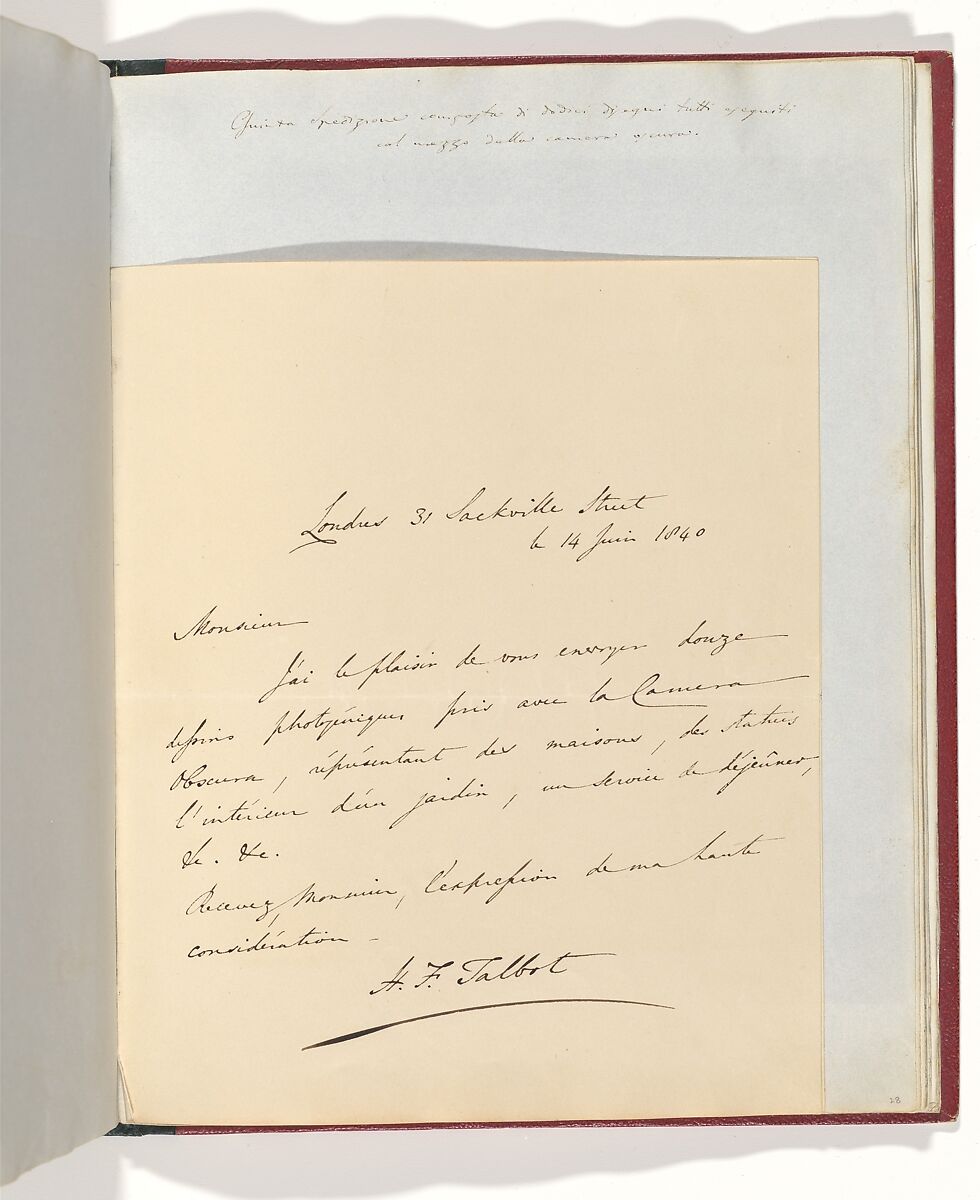 Quinta Spedizione composta di dodici disegni tutti eseguiti
col mezzo della camera oscura.
Londres 31 Sackville Street
le 14 Juin 1840
Monsieur
J'ai le plaisir de vous envoyer douze
dessins photogéniques pris avec la Camera
Obscura, représentant des maisons, des statues
l'intérieur d'un jardin, un service de déjeûner,
&c. &c.
Recevez, Monsieur, l'expression de ma haute
considération –
H. F. Talbot
28